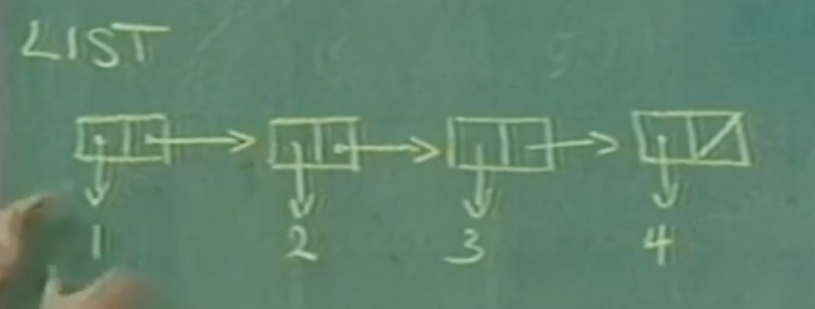 LIST
1 2 3 4